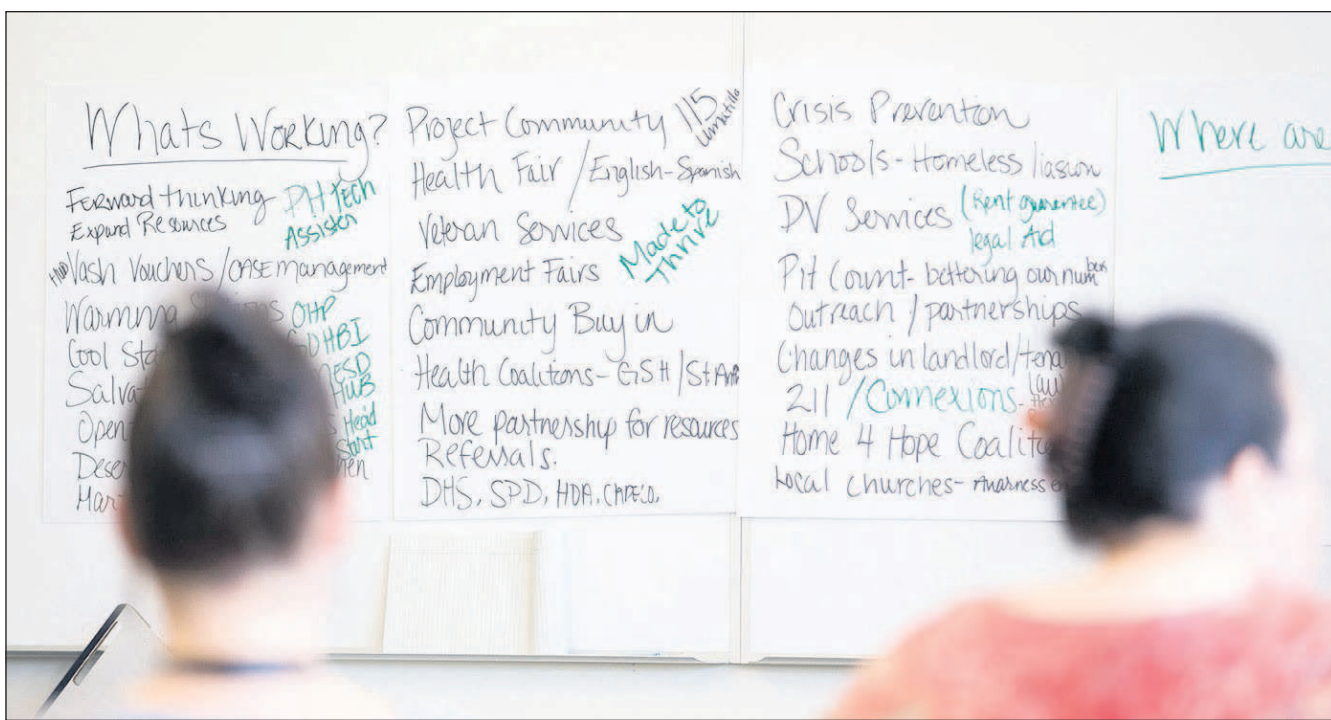 Whats Working?
Forward thinking PH Tech
Expand Resources Assisten
HUD Vash Vouchers / CASE management
Warming OHP
Cool Sta DHBI
Salvat ESD
HUB
Open Head
Start
Deser
Mar
Project Community 115
Umatilla
Health Fair / English-Spanish
Veteran Services
Made to
Thrive
Employment Fairs
Community Buy in
Health Coalitons - GSH / St. An
More partnership for resources
Referrals.
DHS, SPD, HDA, CAPECO,
Crisis Prevention
Schools - Homeless liasion
DV Services (Rent guarentee)
legal Aid
Pit Count - bettering our number
Outreach / partnerships
Changes in landlord/tena
law
211 / Connexions -
Home 4 Hope Coalito
Local Churches -
Where are